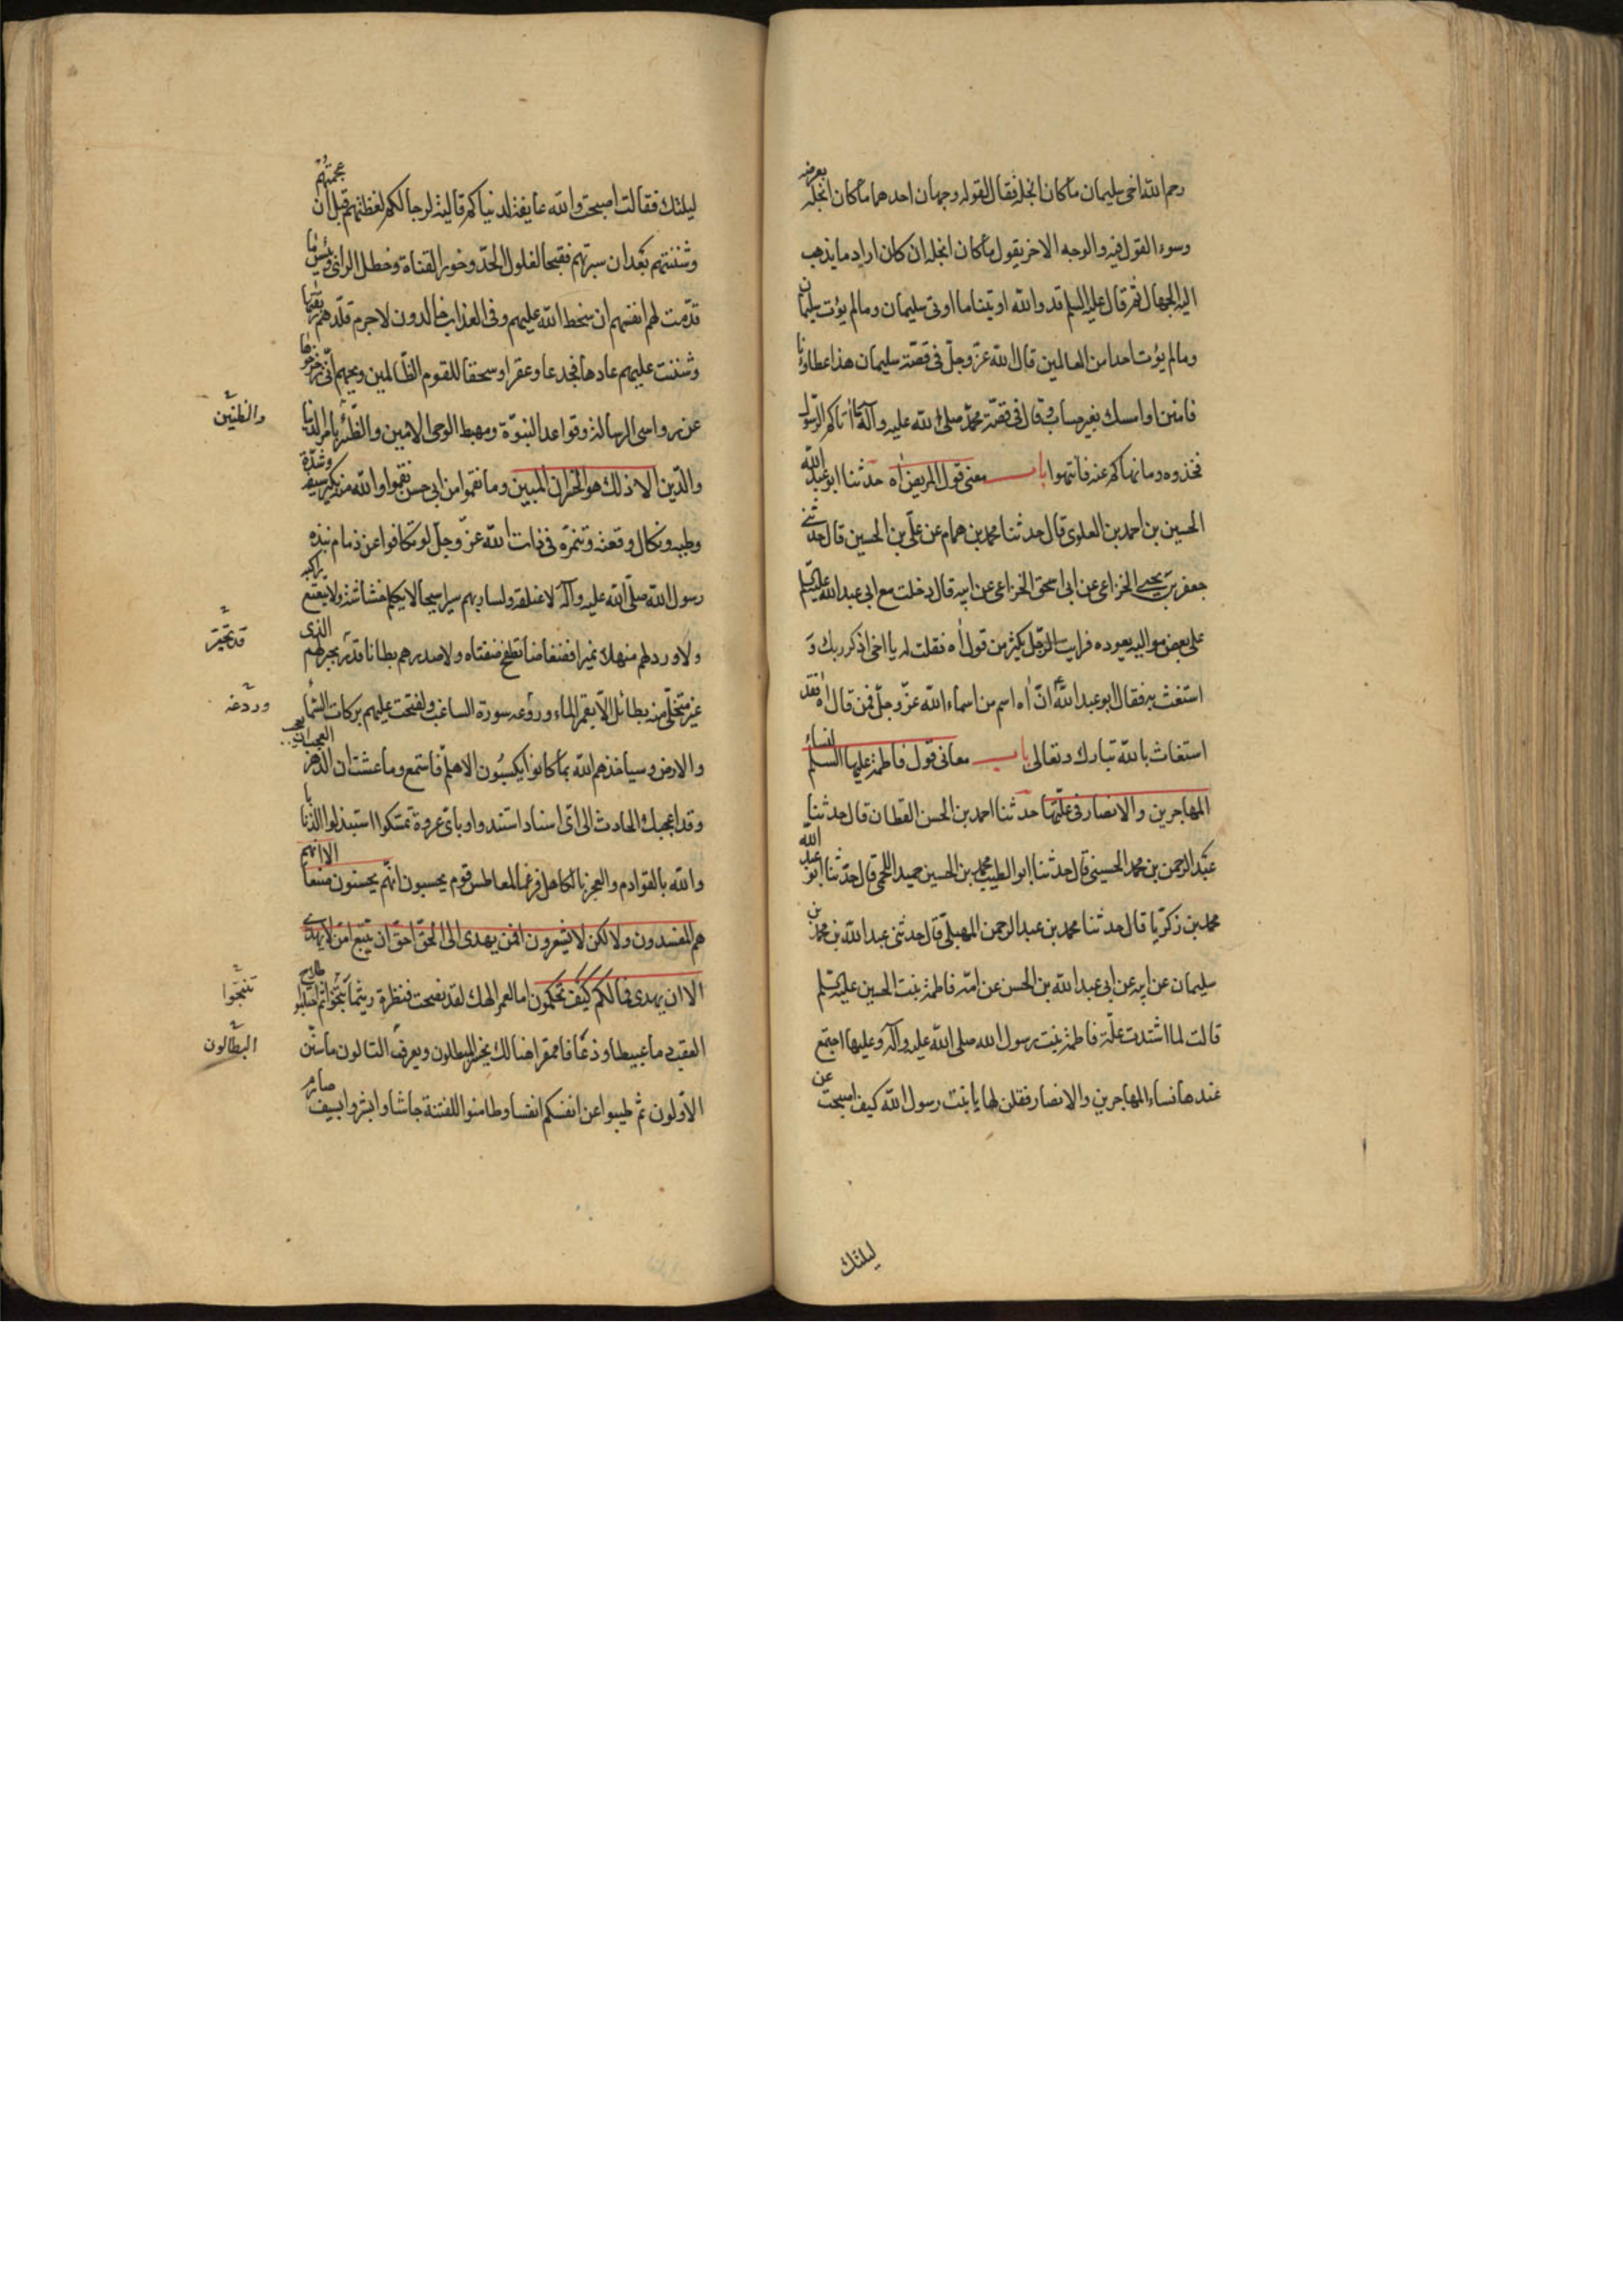 رحم الله اخى سليمان ما كان ابخله فقال لقوله وجهان احدهما ما كان ابخله بعرضه
وسوء القول فيه والوجه الاخر يقول ما كان ابخله ان كان اراد ما يذهب
اليه الجهال ثم قال عليه السلم قد والله اوتينا ما اوتى سليمان وما لم يؤت سليمان
وما لم يؤت احدا من العالمين قال الله عزّ وجلّ فى قصّة سليمان هذا عطاؤنا
فامنن او امسك بغير حساب وقال فى قصّة محمّد صلى الله عليه وآله ما اتاكم الرّسول
فخذوه وما نهاكم عنه فانتهوا باب معنى قول المريض اه حدثنا ابو عبد الله
الحسين بن احمد بن العلوى قال حدثنا محمد بن همام عن علّى بن الحسين قال حدثنى
جعفر بن يحيى الخزاعى عن ابى اسحق الخزاعى عن ابيه قال دخلت مع ابى عبد الله عليه السّلم
على بعض مواليه يعوده فرايت الرّجل يكثر من قول اه فقلت له يا اخى اذكر ربك و
استغث به فقال ابو عبد الله ع انّ اه اسم من اسماء الله عزّ وجلّ فمن قال اه فقد
استغاث بالله تبارك وتعالى باب معانى قول فاطمة عليها السلم لنساء
المهاجرين والانصار فى علّتها حدثنا احمد بن الحسن القطان قال حدثنا
عبد الرحمن بن محمد الحسينى قال حدثنا ابو الطيب محمد بن الحسين حميد اللخمى قال حدّثنا ابو عبد الله
محمد بن زكريّا قال حدثنا محمد بن عبد الرحمن المهبلّى قال حدثنى عبد الله بن محمد بن
سليمان عن ابيه عن ابى عبد الله بن الحسن عن امّه فاطمة بنت الحسين عليه السّلم
قالت لما اشتدت علّة فاطمة بنت رسول الله صلى الله عليه وآله وعليها اجتمع
عندها نساء المهاجرين والانصار فقلن لها يا بنت رسول الله كيف اصبحت عن
ليلتك
ليلتك فقالت اصبحت والله عايفة لدنياكم قالية لرجالكم لفظتهم قبل ان عجمتهم
وشنئتهم بعد ان سبرتهم فقبحا لفلول الحدّ وخور القناة وخطل الراى وبئس ما
قدّمت لهم انفسهم ان سخط الله عليهم وفى العذاب خالدون لا جرم قلّدتهم ربقتها
وشننت عليهم عارها فجدعا وعقرا وسحقا للقوم الظّالمين ويحهم انّى زحزحوها
عن رواسى الرسالة وقواعد النبوّة ومهبط الوحى الامين والطّبين بامر الدنيا
والطبين
والدّين الا ذلك هو الخسران المبين وما نقموا من ابى حسن نقموا والله منه نكير سيفه وشدّة
وطئه ونكال وقعته وتنمّره فى ذات الله عزّ وجلّ لو تكافوا عن زمام نبذه
رسول الله صلّى الله عليه وآله لاعتلقه ولسار بهم سيرا سجحا لا يكلم خشاشه ولا يتعتع راكبه
ولاوردهم منهلا نميرا فضفاضا تطفح ضفتاه ولاصدرهم بطانا قد تحيّر بهم الرى
قد تحيّر
غير متحلّى منه بطائل الّا بغمر الماء وردعه سورة الساغب ولفتحت عليهم بركات السّماء
وردعه
والارض وسياخذهم الله بما كانوا يكسبون الا هلمّ فاستمع وما عشت اراك الدّهر العجب
وقد اعجبك الحادث الى اىّ اسناد استندوا وباىّ عروة تمسّكوا استبدلوا الذنابا
والله بالقوادم والعجز بالكاهل فرغما لمعاطس قوم يحسبون انّهم يحسنون صنعا الا انهم
هم المفسدون ولا لكن لا يشعرون افمن يهدى الى الحق احق ان يتبع امّن لا يهدّى
الا ان يهدى فما لكم كيف تحكمون اما لعمر الهك لقد لقحت فنظرة ريثما تنتجوا ثم احتلبوا طلاع
تنتجوا
القعب دما عبيطا وذعافا ممقرا هنالك يخسر المبطلون ويعرف التالون ما سنّ
البطّالون
الاوّلون ثمّ طيبوا عن انفسكم انفسا وطامنوا للفتنة جاشا وابشروا بسيف صارم